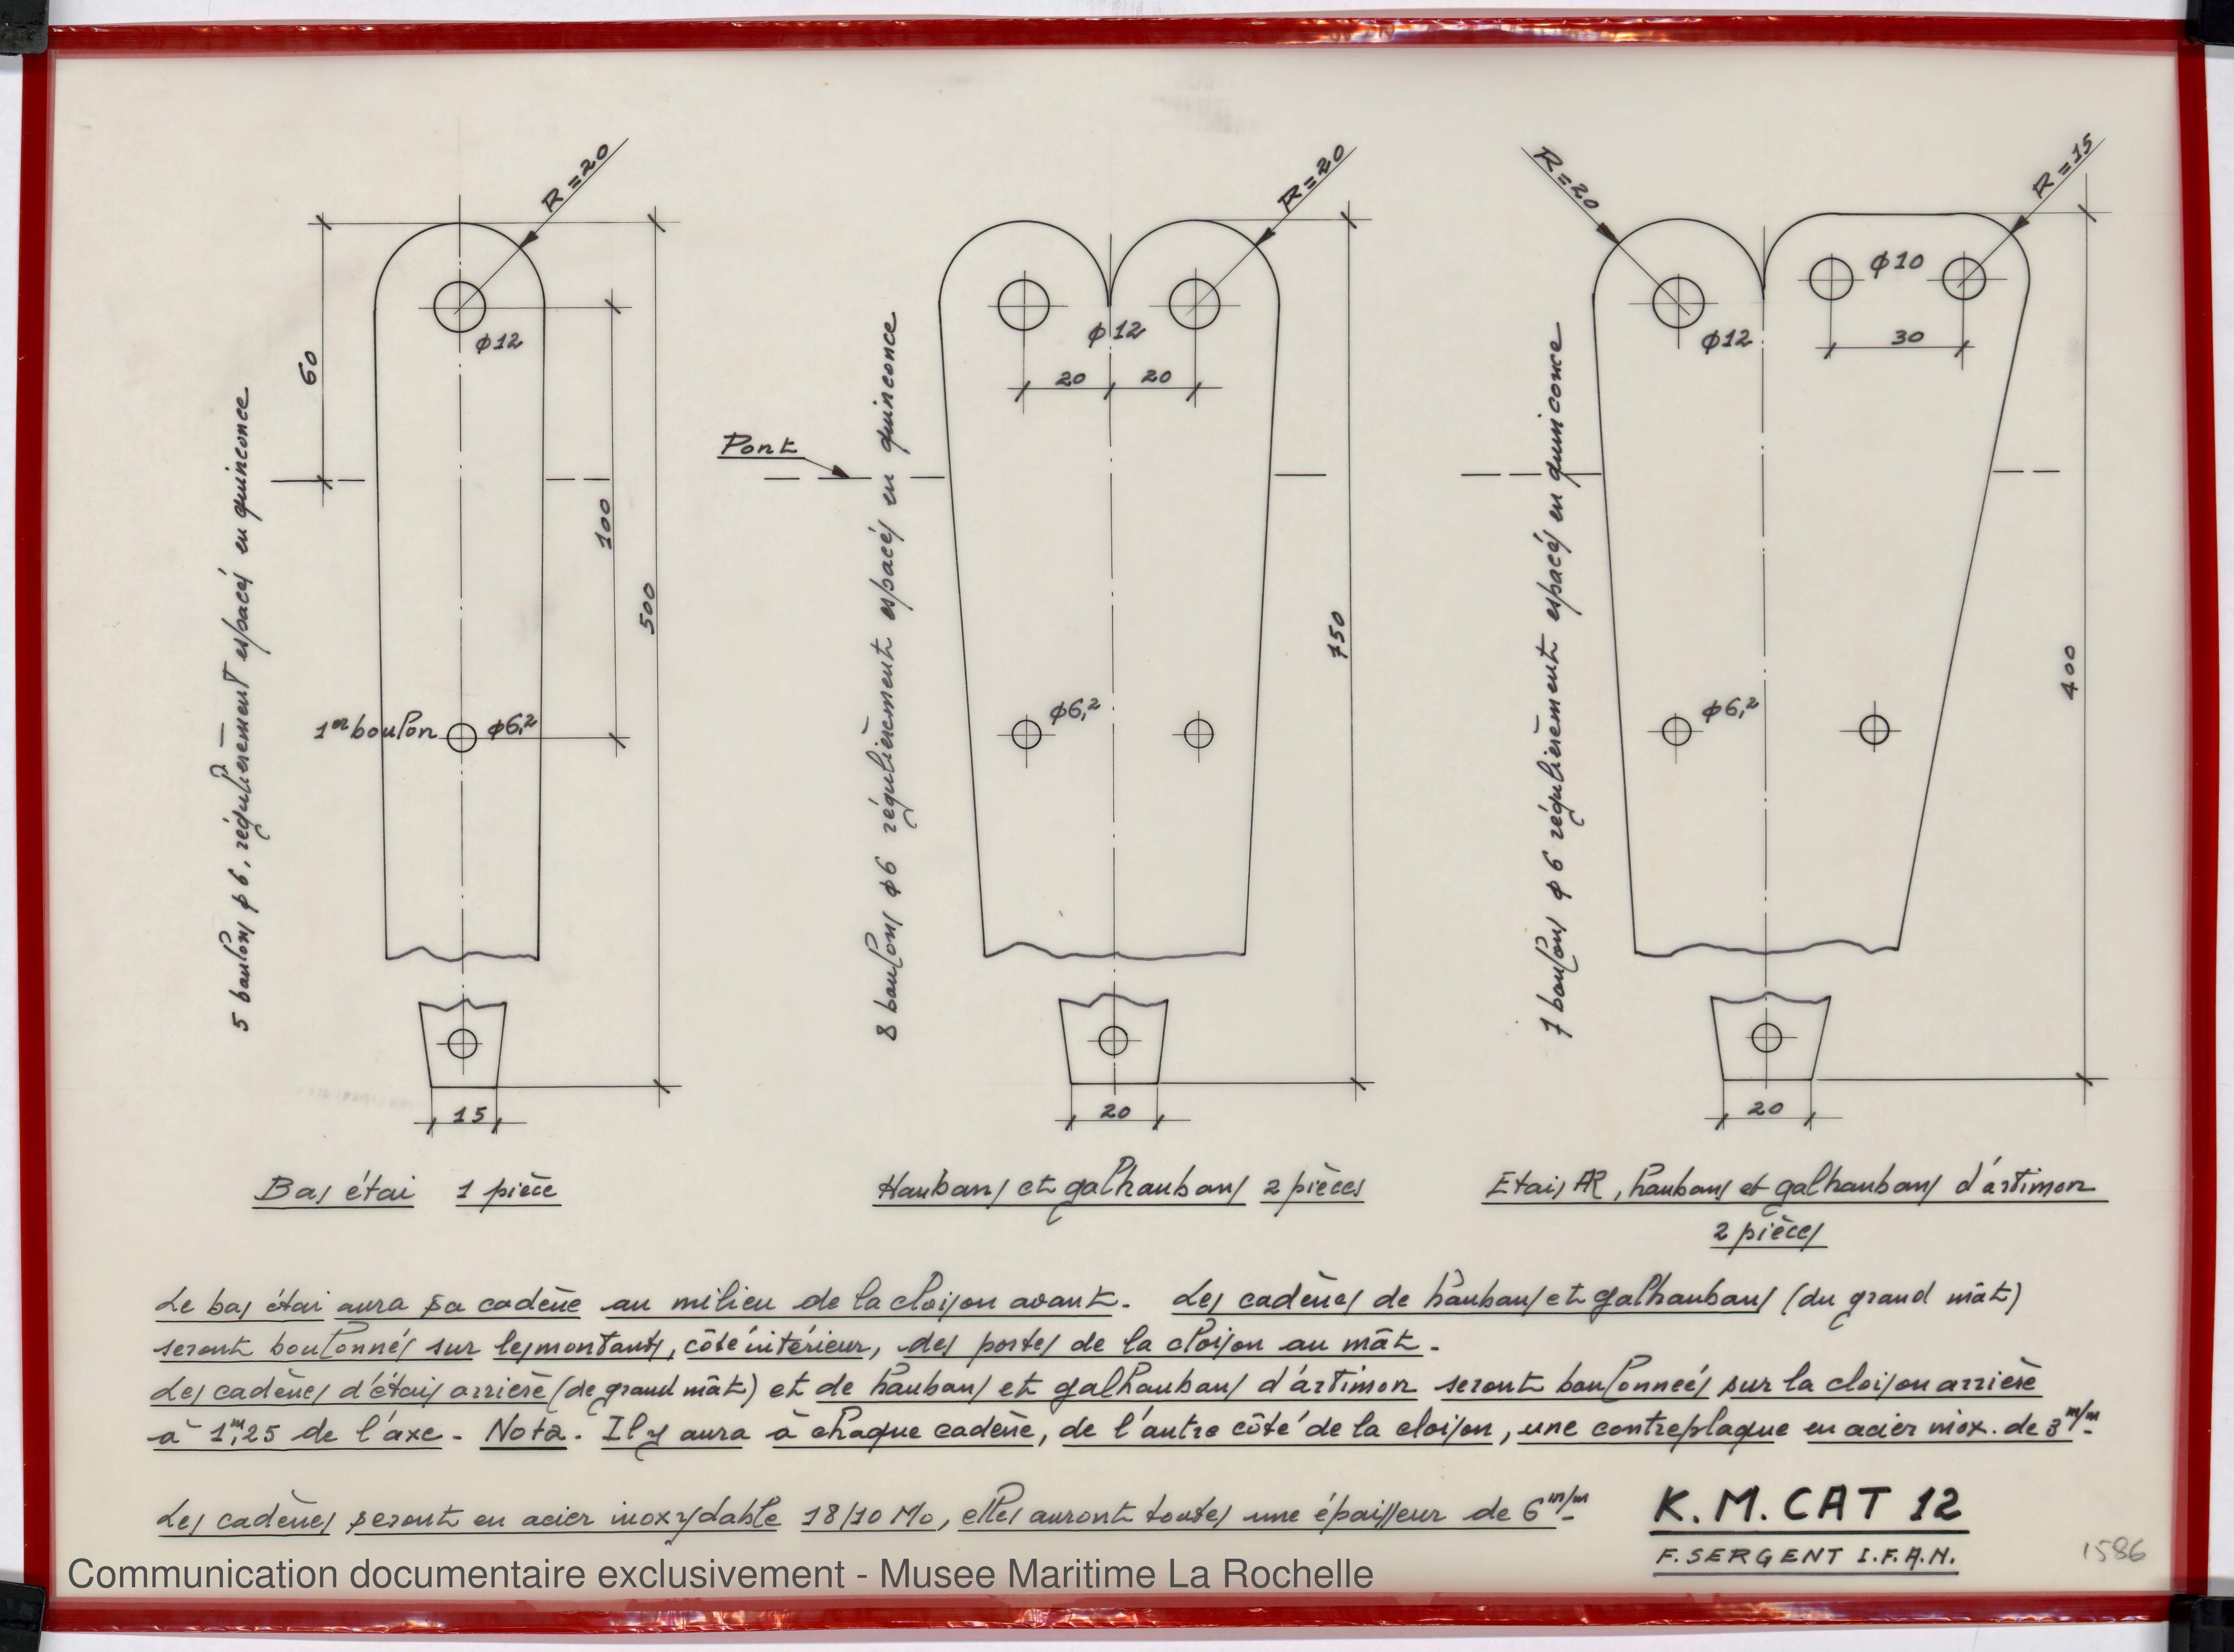 R=20
60
φ12
100
500
5 boulons φ6, régulièrement espacés en quinconce
1er boulon
φ6,2
15
Bas étai 1 pièce
Pont
R=20
φ12
20
20
8 boulons φ6 régulièrement espacés en quinconce
φ6,2
750
20
Haubans et galhaubans 2 pièces
R=20
R=15
φ10
φ12
30
7 boulons φ6 régulièrement espacés en quinconce
φ6,2
400
20
Etais AR, haubans et galhaubans d'artimon
2 pièces
Le bas étai aura sa cadène au milieu de la cloison avant. Les cadènes de haubans et galhaubans (du grand mât)
seront boulonnés sur les montants, côté intérieur, des portes de la cloison au mât.
Les cadènes d'étais arrière (de grand mât) et de haubans et galhaubans d'artimon seront boulonneés sur la cloison arrière
à 1m,25 de l'axe. Nota. Il y aura à chaque cadène, de l'autre côté de la cloison, une contreplaque en acier inox. de 3m/m.
Les cadènes seront en acier inoxydable 18/10 Mo, elles auront toutes une épaisseur de 6m/m.
K.M.CAT 12
F. SERGENT I.F.A.N.
1586
Communication documentaire exclusivement - Musee Maritime La Rochelle